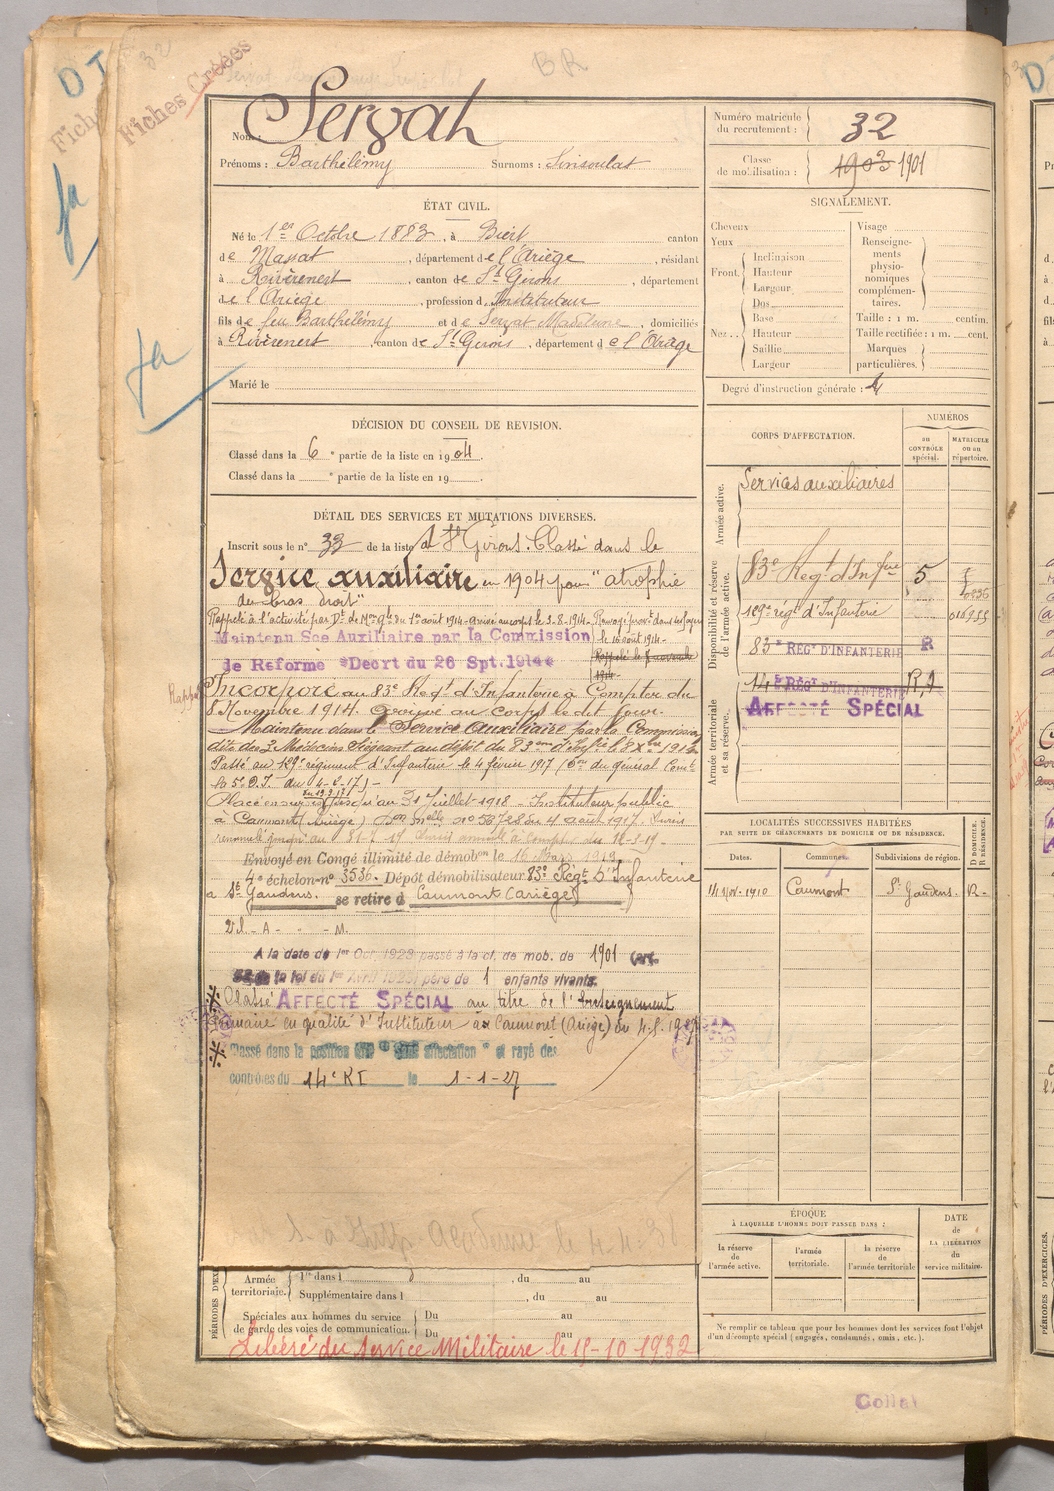 DI
Fiches Créées
32
BR
Nom : Servat
Prénoms : Barthélémy Surnoms : Sinsoulat
Numéro matricule du recrutement : 32
Classe de mobilisation : 1903 1901
ÉTAT CIVIL.
Né le 1er Octobre 1883, à Biert canton
de Massat, département de l'Ariège, résidant
à Rivèrenert canton de St Girons, département
de l'Ariège, profession d'Instituteur
fils de feu Barthélémy et de Servat Madeleine, domiciliés
à Rivèrenert, canton de St Girons, département de l'Ariège
Marié le
SIGNALEMENT.
Cheveux
Yeux
Front. Inclinaison
Hauteur
Largeur
Nez.. Dos
Base
Hauteur
Saillie
Largeur
Visage
Renseigne-
ments
physio-
nomiques
complémen-
taires.
Taille : 1 m. centim.
Taille rectifiée : 1 m. cent.
Marques
particulières.
Degré d'instruction générale : 4
DÉCISION DU CONSEIL DE REVISION.
Classé dans la 6e partie de la liste en 1904.
Classé dans la e partie de la liste en 19 .
CORPS D'AFFECTATION.
NUMÉROS
au CONTRÔLE spécial.
MATRICULE ou au répertoire.
Armée active.
Services auxiliaires
Disponibilité et réserve de l'armée active.
83e Régt d'Infrie 5
129e régt d'Infanterie 016955
83e RÉGT D'INFANTERIE R
Armée territoriale et sa réserve.
14e RÉGT D'INFANTERIE R,I
AFFECTÉ SPÉCIAL
DÉTAIL DES SERVICES ET MUTATIONS DIVERSES.
Inscrit sous le n° 33 de la liste de St Girons. Classé dans le
Service auxiliaire en 1904 pour "atrophie
du bras droit"
Rappelé à l'activité par Dt. de Mon gle du 1er août 1914. Arrivé au corps le 3-8-1914. Renvoyé provt dans ses foyers
le 16 août 1914.
Maintenu Sce Auxiliaire par la Commission
de Réforme Décrt du 26 Spt. 1914
Rappelé le 8 novembre
1914
Incorporé au 83e Régt d'Infanterie à Compter du
8 Novembre 1914. Arrivé au corps le dit jour.
Maintenu dans le Service auxiliaire par la Commission
dite des 2 Médecins Siégeant au dépôt du 83ème d'Infrie le 8 Xbre 1914
Passé au 129e régiment d'Infanterie le 4 février 1917
Placé en sursis jusqu'au 31 Juillet 1918 - Instituteur public
à Caumont (Ariège) Don Mlle n° 58728 du 4 août 1917. Sursis
renouvelé jusqu'au 31-7-19 Sursis annulé à compter du 18-3-19 -
Envoyé en Congé illimité de démobon le 16 Mars 1919
4e échelon n° 3536. Dépôt démobilisateur 83e Régt D'Infanterie
à St Gaudens. se retire à Caumont (Ariège)
A la date du 1er Oct. 1923 passé à la cl. de mob. de 1901 (art.
58 de la loi du 1er Avril 1923) père de 1 enfants vivants.
Classé AFFECTÉ SPÉCIAL au titre de l'Enseignement
Primaire en qualité d'Instituteur à Caumont (Ariège) du 4.5.1927
Classé dans la position dite "sans affectation" et rayé des
contrôles du 14e RI le 1-1-27
LOCALITÉS SUCCESSIVES HABITÉES
PAR SUITE DE CHANGEMENTS DE DOMICILE OU DE RÉSIDENCE.
Dates. Communes. Subdivisions de région. D DOMICILE. R RÉSIDENCE.
14 Nov. 1910 Caumont St Gaudens R -
ÉPOQUE
À LAQUELLE L'HOMME DOIT PASSER DANS :
la réserve de l'armée active.
l'armée territoriale.
la réserve de l'armée territoriale
DATE de LA LIBÉRATION du service militaire.
Armée territoriale. 1re dans l , du au
Supplémentaire dans l , du au
Spéciales aux hommes du service de garde des voies de communication. Du au
Du au
PÉRIODES D'EX
Libéré du Service Militaire le 15-10-1932
Ne remplir ce tableau que pour les hommes dont les services font l'objet
d'un décompte spécial (engagés, condamnés, omis, etc.).
PÉRIODES D'EXERCICES.